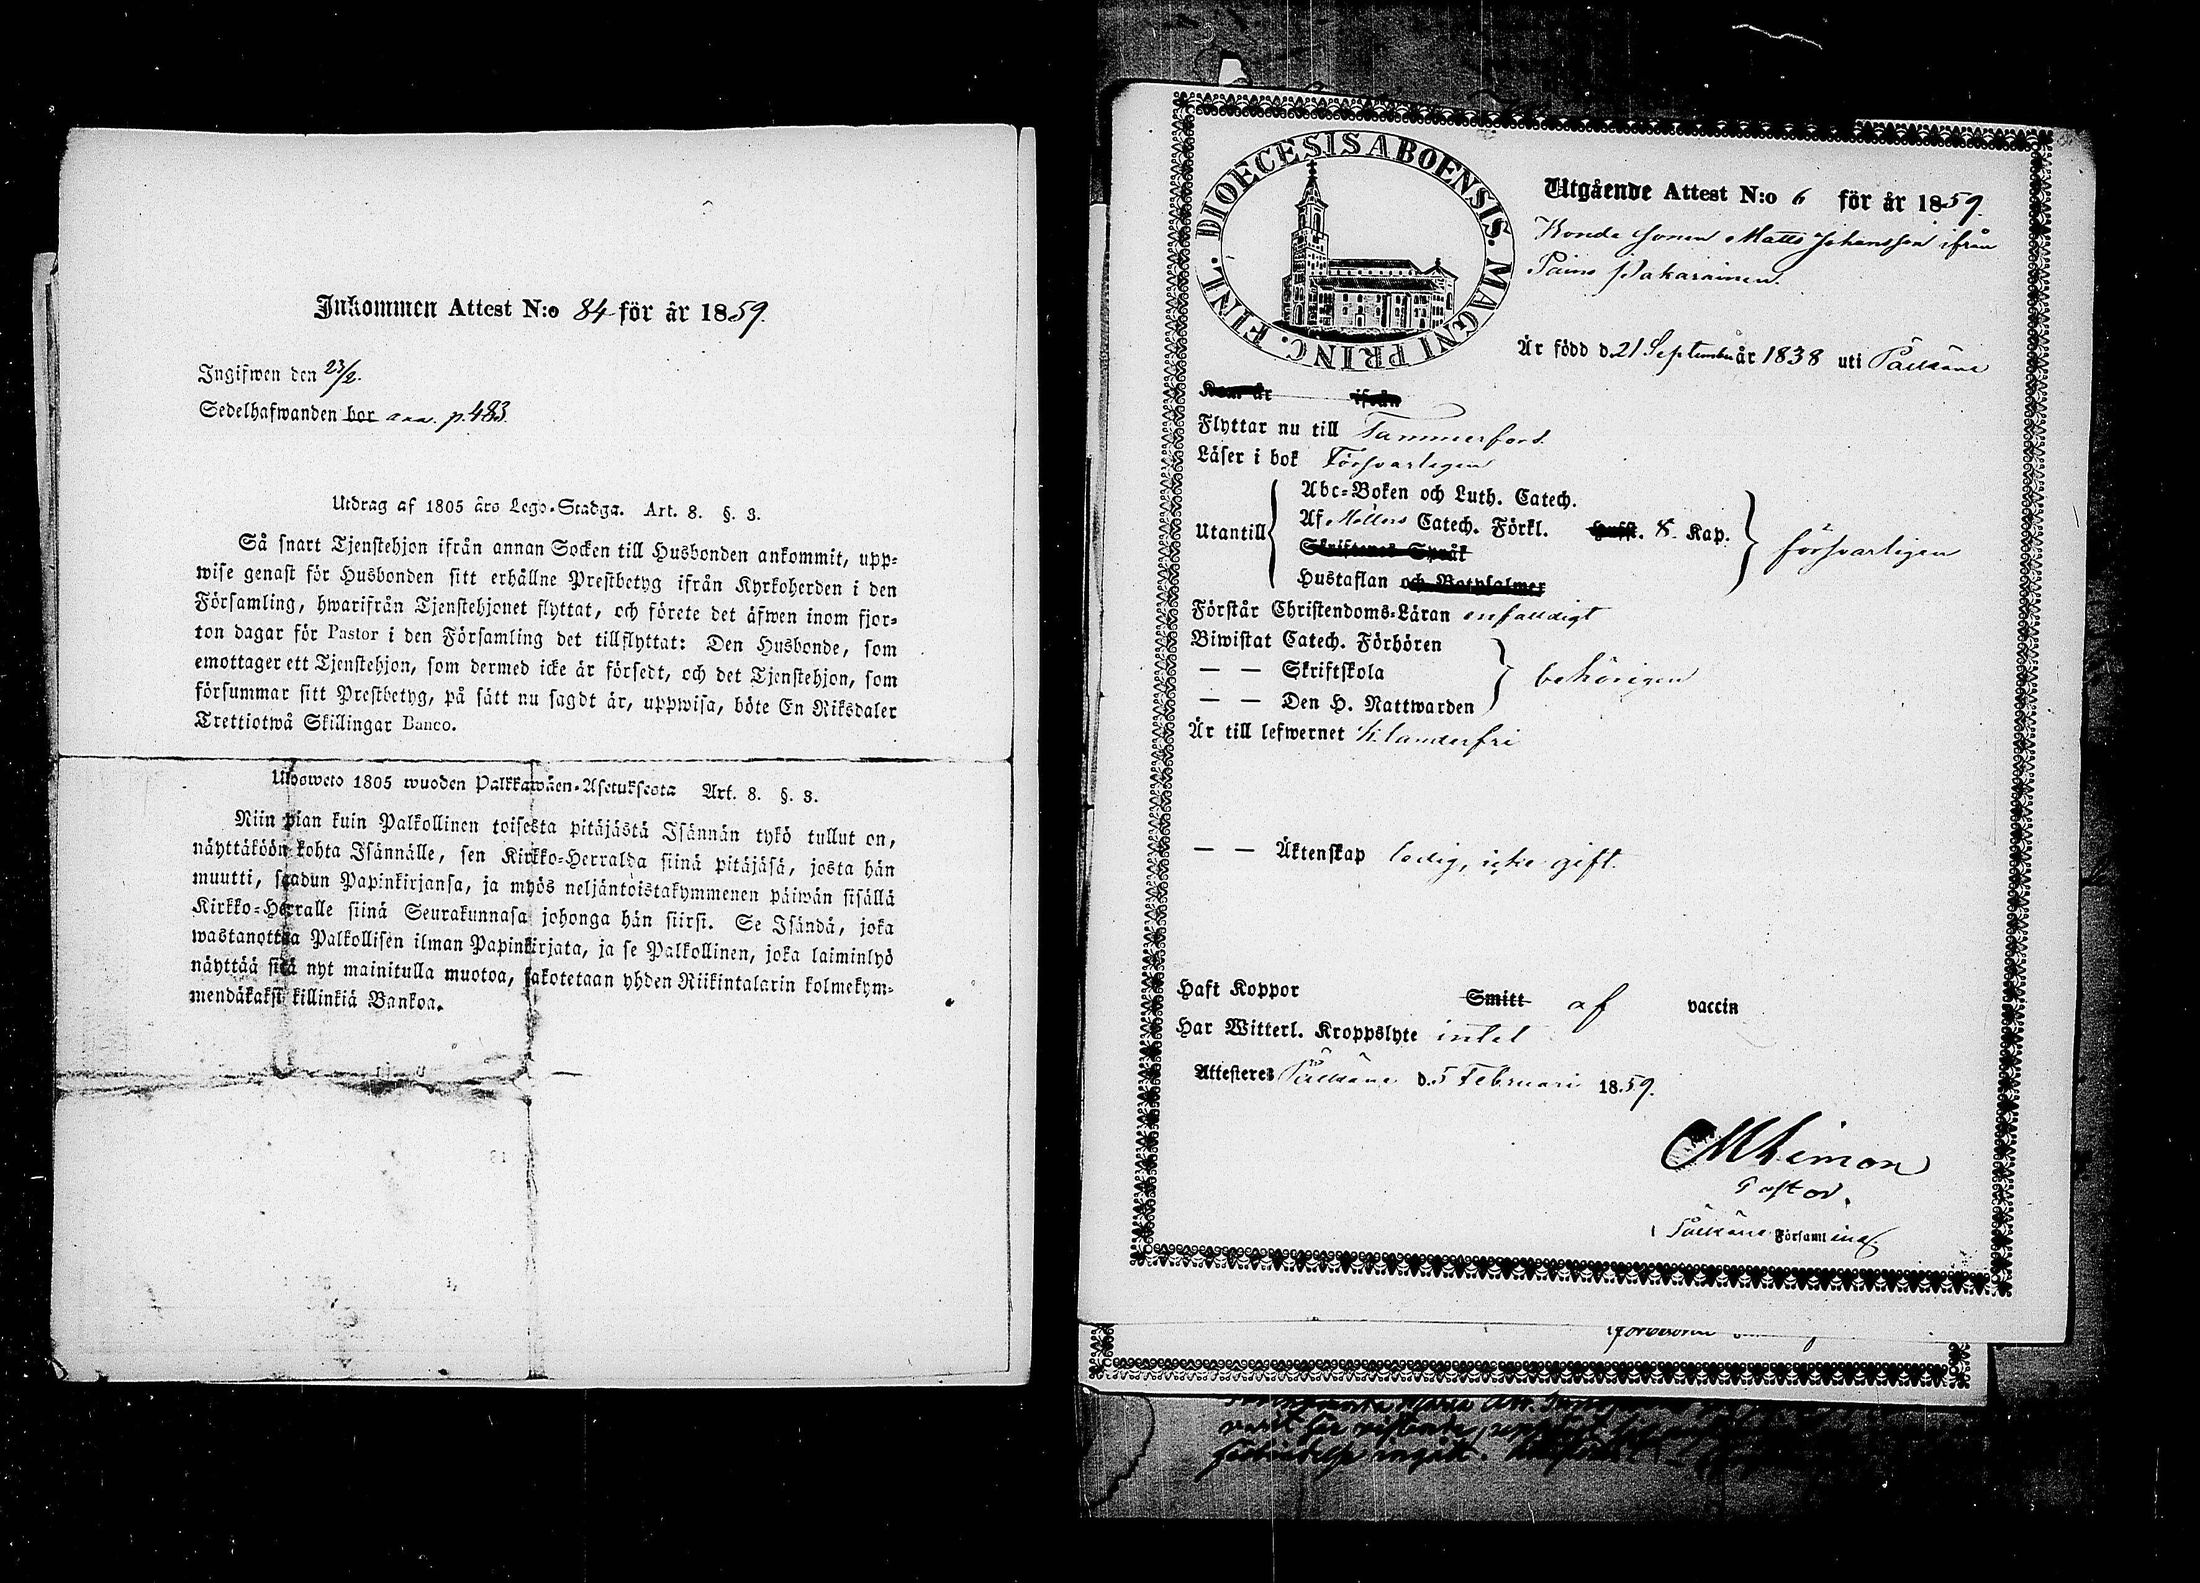 Inkommen Attest N:o 84 för år 1859.
Ingifwen den 23/2.
Sedelhafwanden bor ann. p. 483.
Utdrag af 1805 års Lego-Stadga. Art. 8. §. 3.
Så snart Tjenstehjon ifrån annan Socken till Husbonden ankommit, upp-
wise genast för Husbonden sitt erhållne Prestbetyg ifrån Kyrkoherden i den
Församling, hwarifrån Tjenstehjonet flyttat, och förete det äfwen inom fjor-
ton dagar för Pastor i den Församling det tillflyttat: Den Husbonde, som
emottager ett Tjenstehjon, som dermed icke är försedt, och det Tjenstehjon, som
försummar sitt Prestbetyg, på sätt nu sagdt är, uppwisa, böte En Riksdaler
Trettiotwå Skillingar Banco.
Ulosweto 1805 wuoden Palkkawäen-Asetuksesta Art. 8. §. 3.
Niin pian kuin Palkollinen toisesta pitäjästä Isännän tykö tullut on,
näyttäköön kohta Isännälle, sen Kirkko-Herralda siinä pitäjäsä, josta hän
muutti, saadun Papinkirjansa, ja myös neljäntoistakymmenen päiwän sisällä
Kirkko-Herralle siinä Seurakunnasa johonga hän siirsi. Se Isändä, joka
wastanottaa Palkollisen ilman Papinkirjata, ja se Palkollinen, joka laiminlyö
näyttää sitä nyt mainitulla muotoa, sakotetaan yhden Riikintalarin kolmekym-
mendäkaksi killinkiä Bankoa.
DIOECESIS ABOENSIS. MAGNI PRINC. FINL.
Utgående Attest N:o 6 för år 1859.
Bonde sonen Matts Johansson ifrån
Pains Pakarainen.
Är född d. 21 September år 1838 uti Pälkäne
Kom år ifrån
Flyttar nu till Tammerfors.
Läser i bok Försvarligen
Utantill
Abc-Boken och Luth. Catech.
Af Möllers Catech. Förkl. Hufst. 8. Kap.
Skriftenes Språk
Hustaflan och Botpsalmer
försvarligen
Förstår Christendoms-Läran enfaldigt
Biwistat Catech. Förhören
— — Skriftskola
— — Den H. Nattwarden
behörigen
Är till lefwernet klanderfri
— — Äktenskap ledig, icke gift.
Haft Koppor Smitt af vaccin
Har Witterl. Kroppslyte intet
Attesteres Pälkäne d. 5 Februari 1859.
M Limon
Pastor.
i Pälkäne Församling